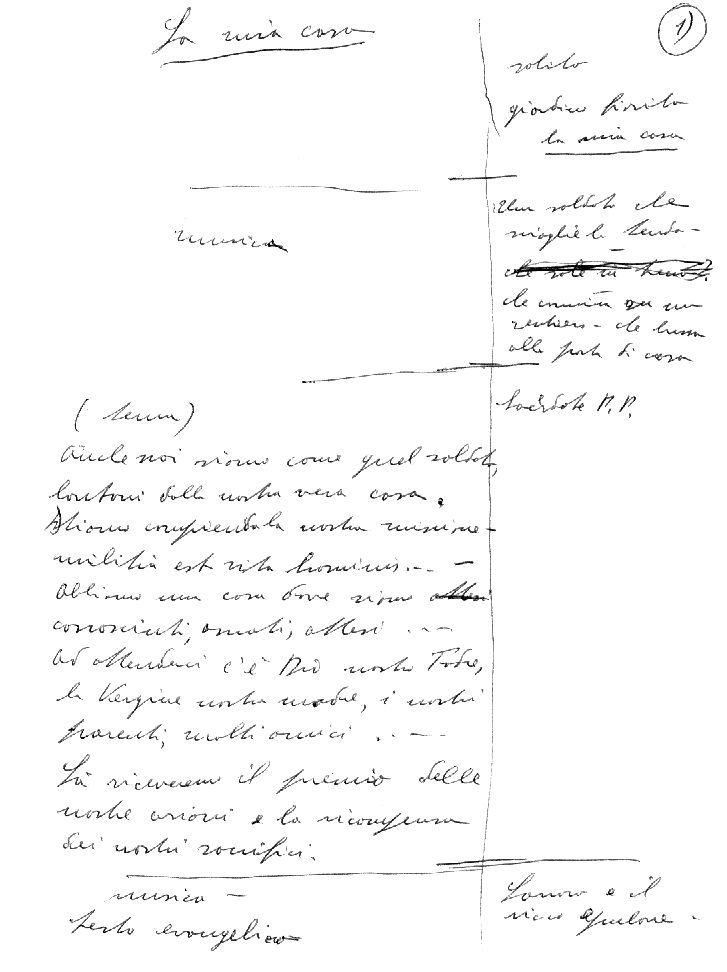 La mia casa
1)
solito
giardino fiorito
la mia casa
musica
Un soldato che
scioglie la tenda -
che
un
sentiero - che bussa
alla porta di casa
(tema)
Sacerdote P. P.
Anche noi siamo come quel soldato,
lontani dalla nostra vera casa.
Stiamo compiendo la nostra missione -
militia est vita hominis... -
Abbiamo una casa dove siamo attesi
conosciuti, amati, attesi ...-
Ad attenderci c'è Dio nostro Padre,
la Vergine nostra madre, i nostri
parenti, molti amici ...-
Là riceveremo il premio delle
nostre azioni e la ricompensa
dei nostri sacrifici.
musica -
testo evangelico
Lazzaro e il
ricco epulone -